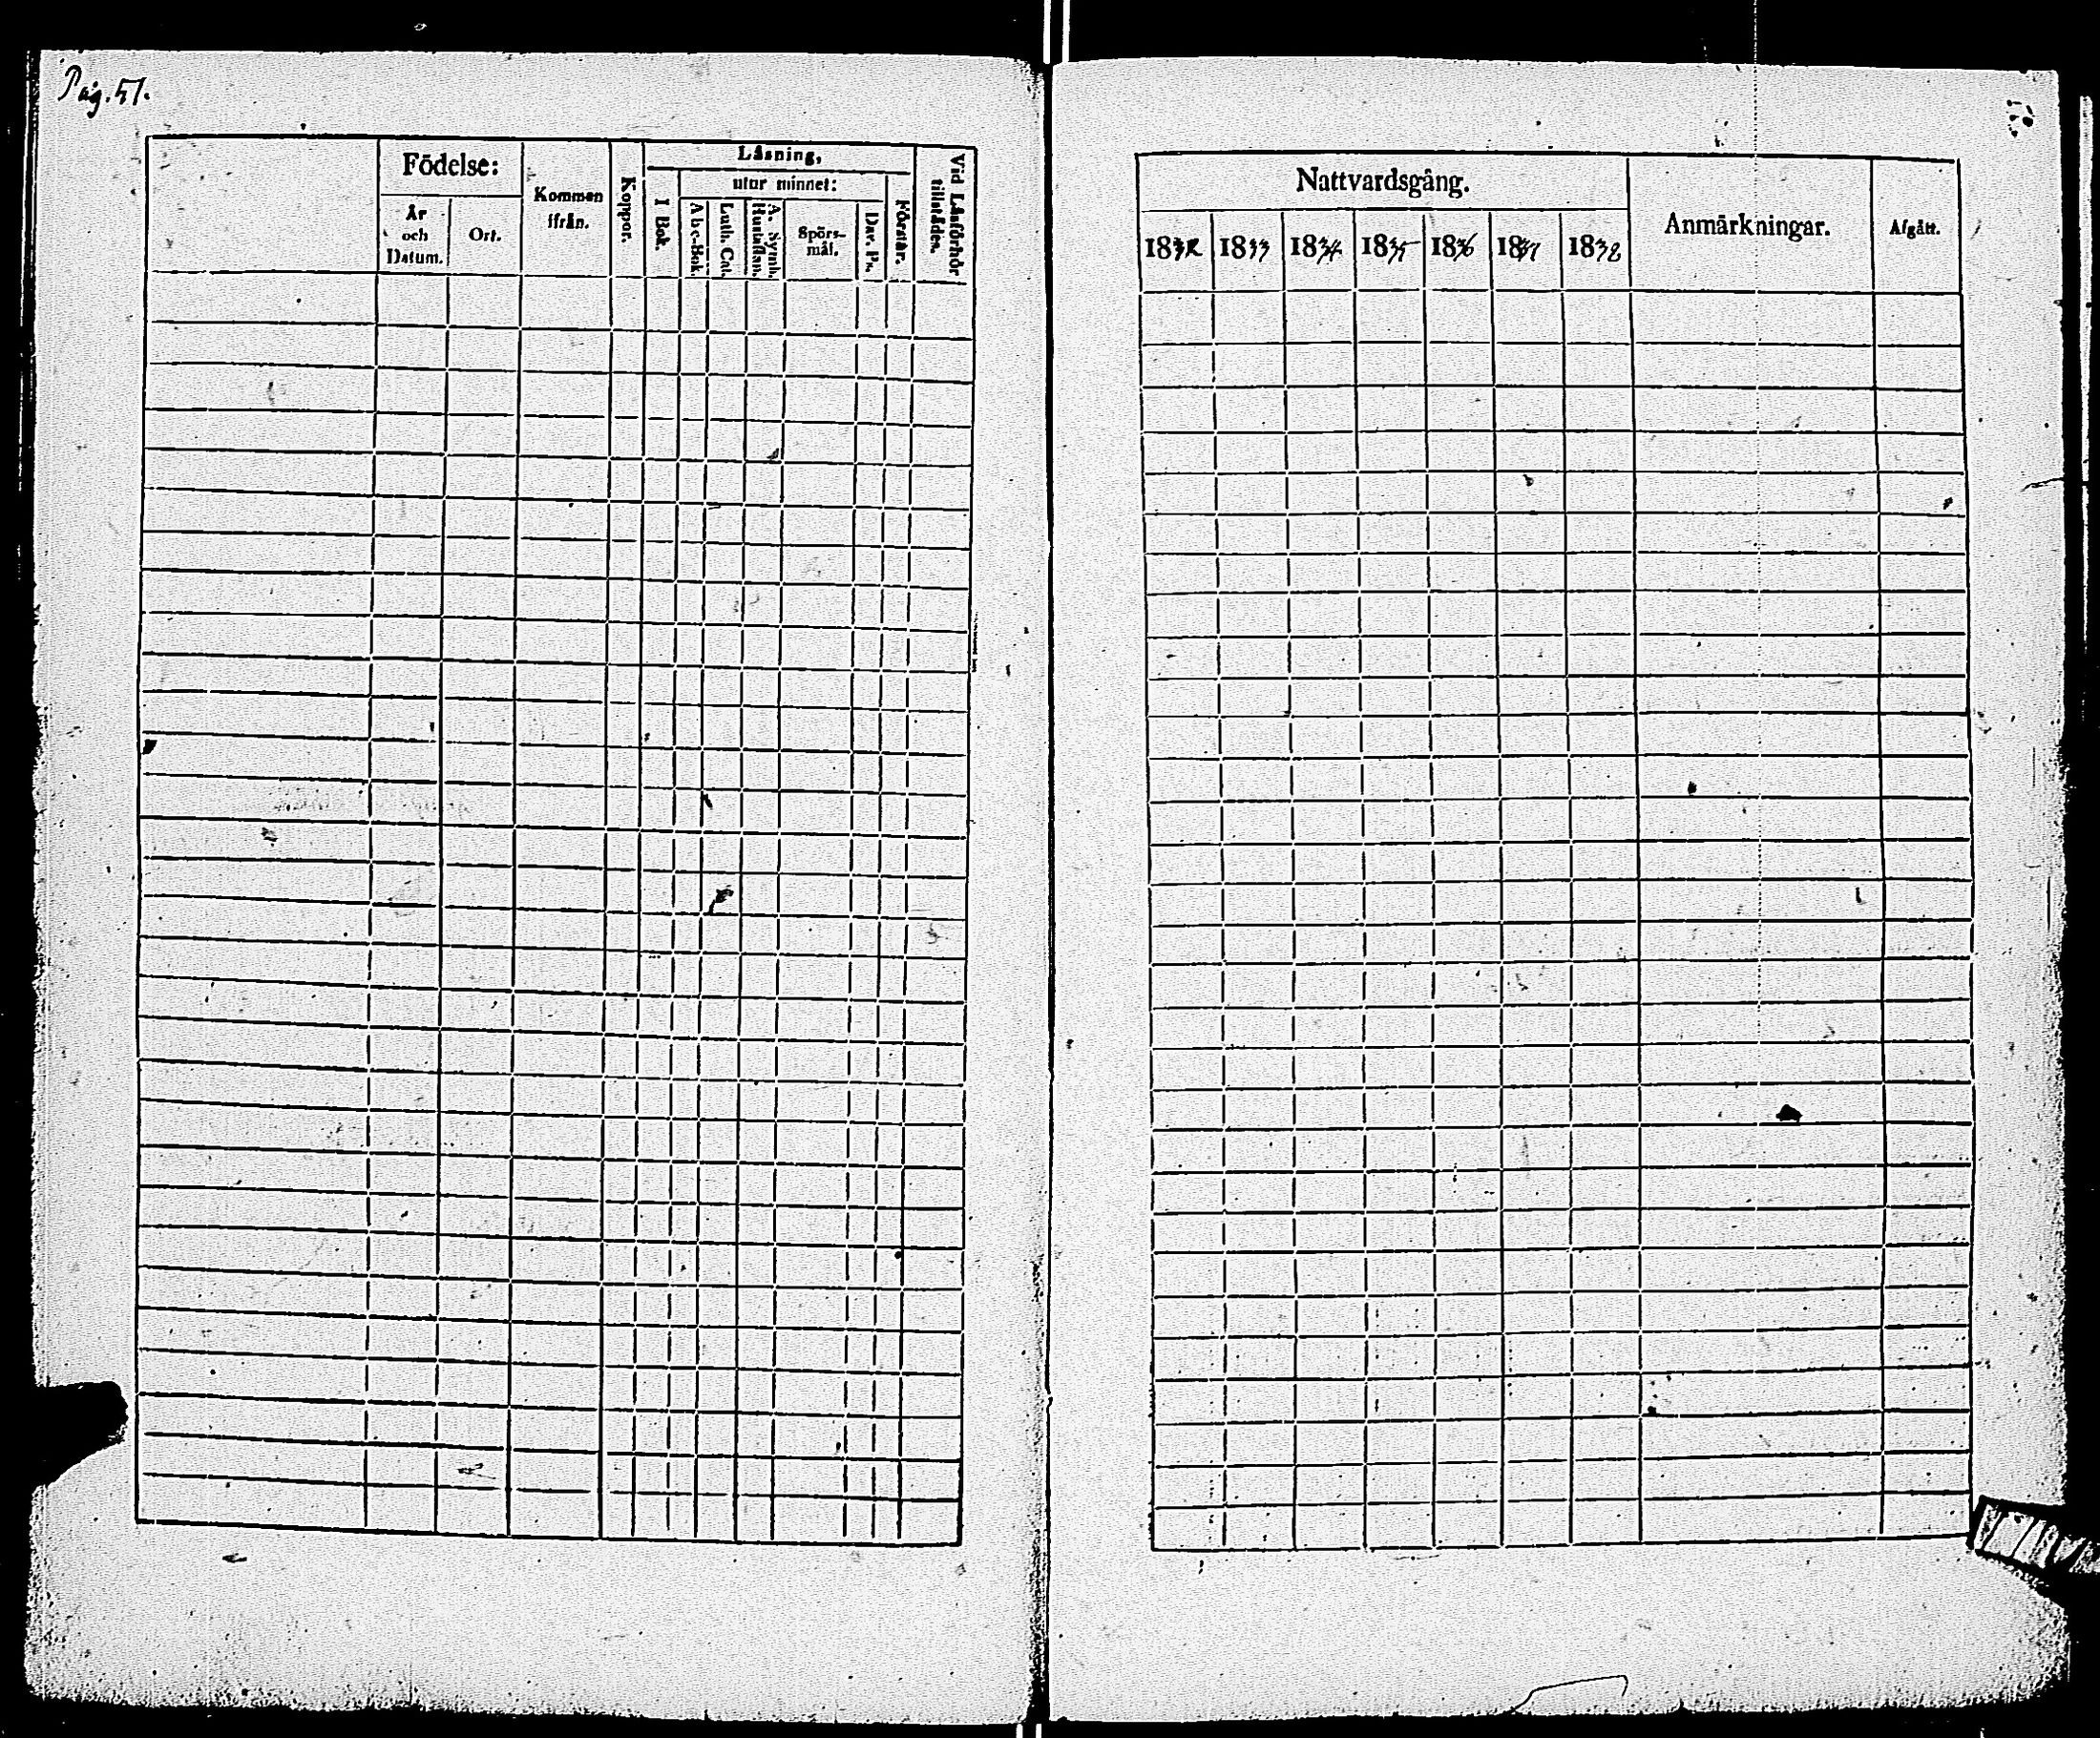 Pag. 51.
Födelse:
År
och
Datum.
Ort.
Kommen
ifrån.
Koppor.
Läsning,
I Bok.
utur minnet:
Abc-Bok.
Luth. Cat.
A. Symb.
Hustaflan.
Spörs-
mål.
Dav. Ps.
Förstår.
Vid Läsförhör
tillstädes.
Nattvardsgång.
1832 1833 1834 1835 1836 1837 1838
Anmärkningar.
Afgått.